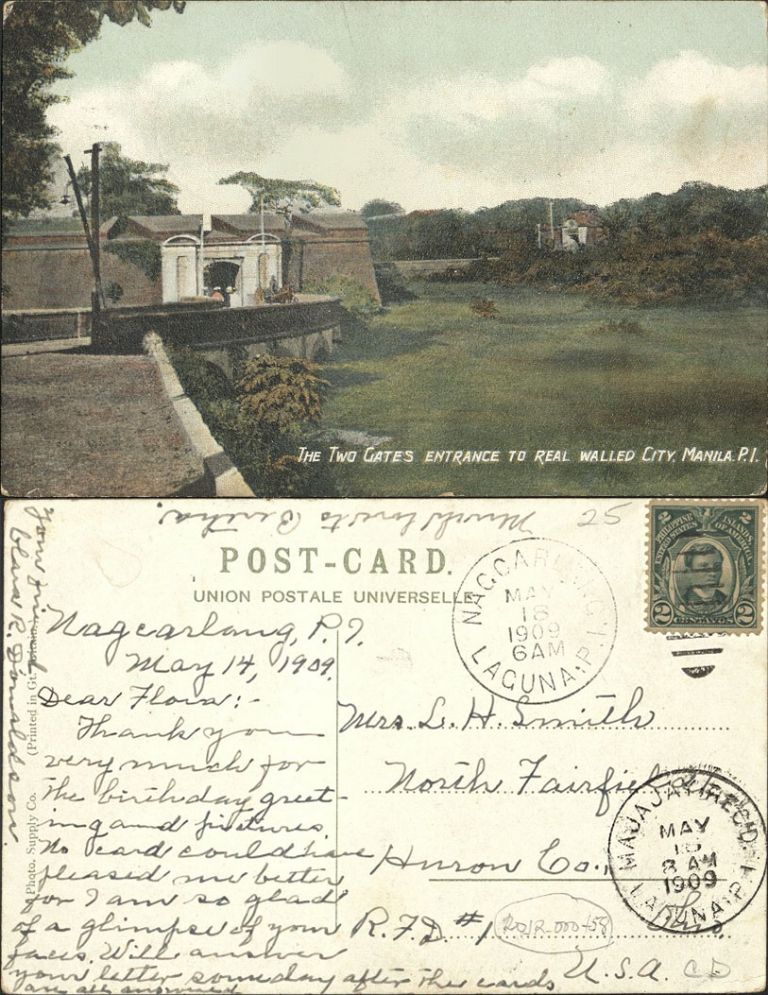 THE TWO GATES ENTRANCE TO REAL WALLED CITY, MANILA. P.I.
Much love to Bertha.
25
POST-CARD.
UNION POSTALE UNIVERSELLE.
PHILIPPINE ISLANDS
UNITED STATES OF AMERICA
2 CENTAVOS 2
NAGCARLANG.
MAY
18
1909
6AM
LAGUNA. P.I.
Nagcarlang, P.I.
May 14, 1909.
Dear Flora:-
Thank you
very much for
the birthday greet-
ing and pictures.
No card could have
pleased me better
for I am so glad
of a glimpse of your
faces. Will answer
your letter someday after the cards
are all answered
Your friend
Clara R. Donaldson.
Photo. Supply Co. (Printed in Gt. Britain.)
Mrs. L. H. Smith
North Fairfield
Huron Co.,
Ohio.
R.F.D. #1
U.S.A.
MAJAJAY, REC'D.
MAY
18
8 AM
1909
LAGUNA. P.I.
2012-000-458
CD